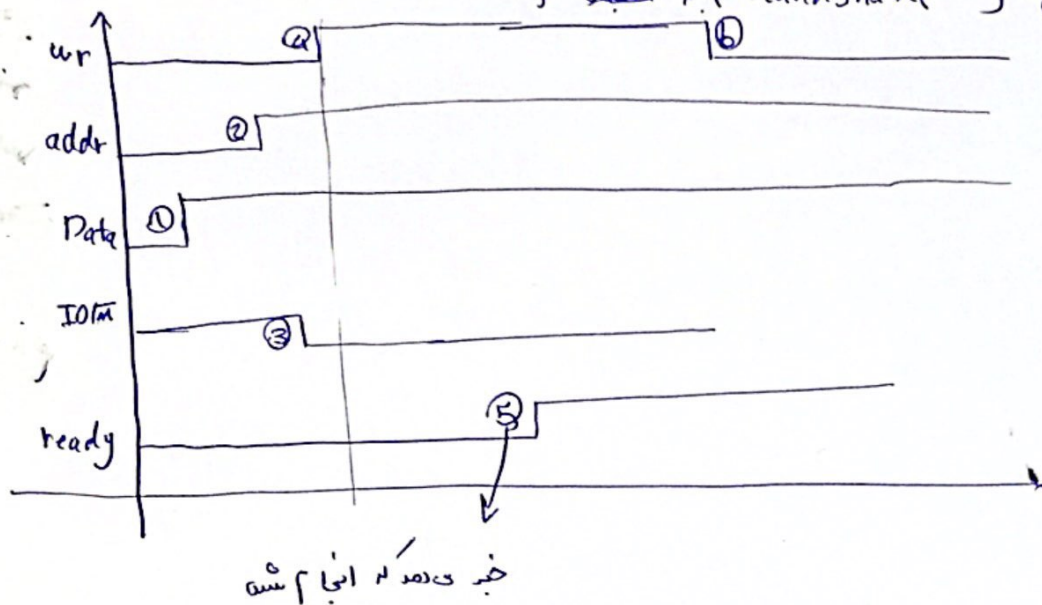 handshake
wr
④
⑥
addr
②
Data
①
IO/M̅
③
ready
⑤
خبر می‌دهد که انجام شد